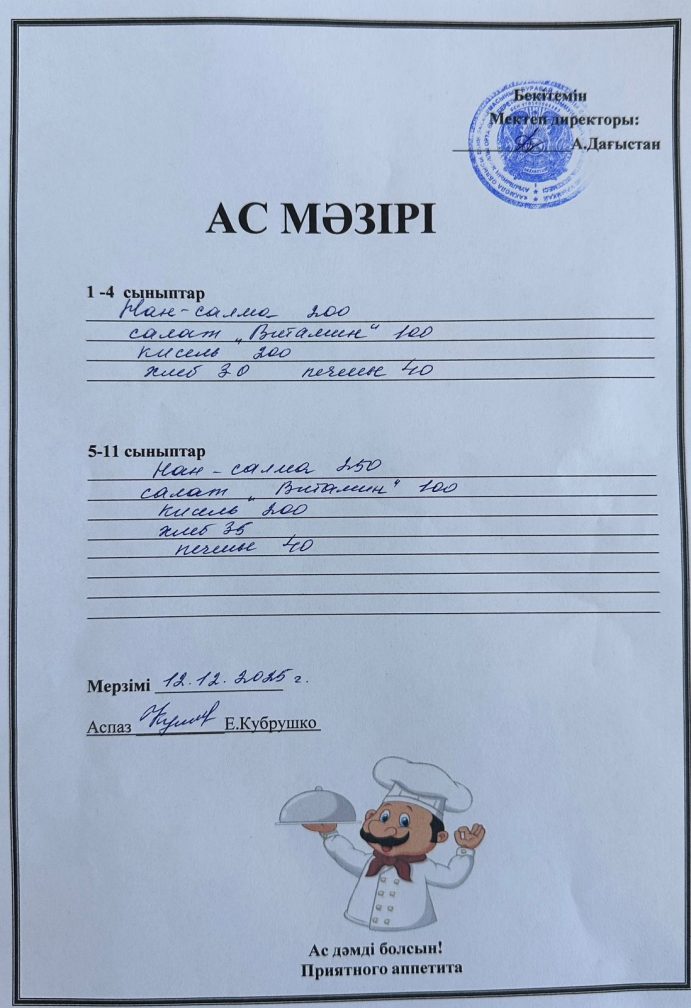 Бекітемін
Мектеп директоры:
А.Дағыстан
АС МӘЗІРІ
1 -4 сыныптар
Нан-салма 200
салат „Витамин“ 100
кисель 200
хлеб 30 печенье 40
5-11 сыныптар
Нан - салма 250
салат „Витамин“ 100
кисель 200
хлеб 35
печенье 40
Мерзімі 12.12.2025 г.
Аспаз Е.Кубрушко
Ас дәмді болсын!
Приятного аппетита